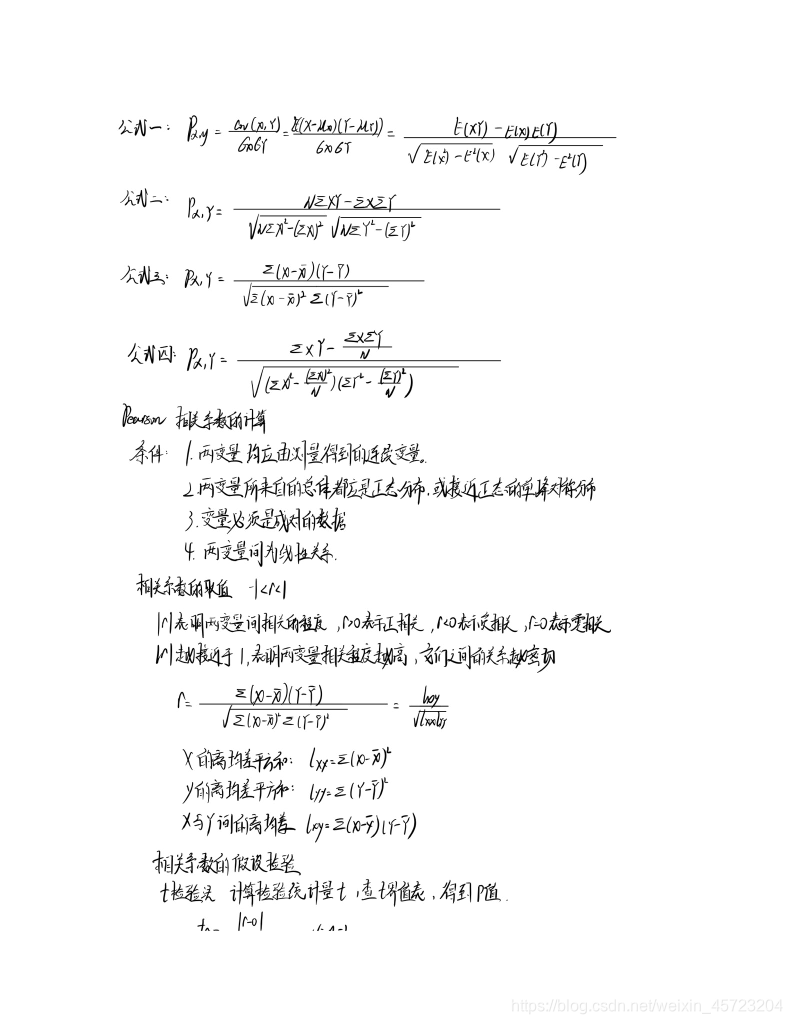 公式一: ρx,y = Cov(X,Y)/σxσY = E((X-μx)(Y-μY))/σxσY = (E(XY) - E(X)E(Y))/(√(E(X²)-E²(X)) √(E(Y²)-E²(Y)))
公式二: ρx,Y = (NΣXY-ΣXΣY)/(√(NΣX²-(ΣX)²) √(NΣY²-(ΣY)²))
公式三: ρx,Y = Σ(X-X̄)(Y-Ȳ)/√(Σ(X-X̄)² Σ(Y-Ȳ)²)
公式四: ρx,Y = (ΣXY - ΣXΣY/N)/√((ΣX²-(ΣX)²/N)(ΣY²-(ΣY)²/N))
Pearson 相关系数的计算
条件: 1. 两变量均应由测量得到的连续变量。
2. 两变量所来自的总体都应是正态分布,或接近正态的单峰对称分布
3. 变量必须是成对的数据
4. 两变量间为线性关系.
相关系数的取值 -1<r<1
|r|表明两变量间相关的程度,r>0表示正相关,r<0表示负相关,r=0表示零相关
|r|越接近于1,表明两变量相关程度越高,它们之间的关系越密切
r = Σ(X-X̄)(Y-Ȳ)/√(Σ(X-X̄)²Σ(Y-Ȳ)²) = lxy/√(lxxlyy)
X的离均差平方和: lxx=Σ(X-X̄)²
y的离均差平方和: lyy=Σ(Y-Ȳ)²
X与Y间的离均差 lxy=Σ(X-X̄)(Y-Ȳ)
相关系数的假设检验
t检验法 计算检验统计量t,查t界值表,得到P值.
|r-0|
https://blog.csdn.net/weixin_45723204